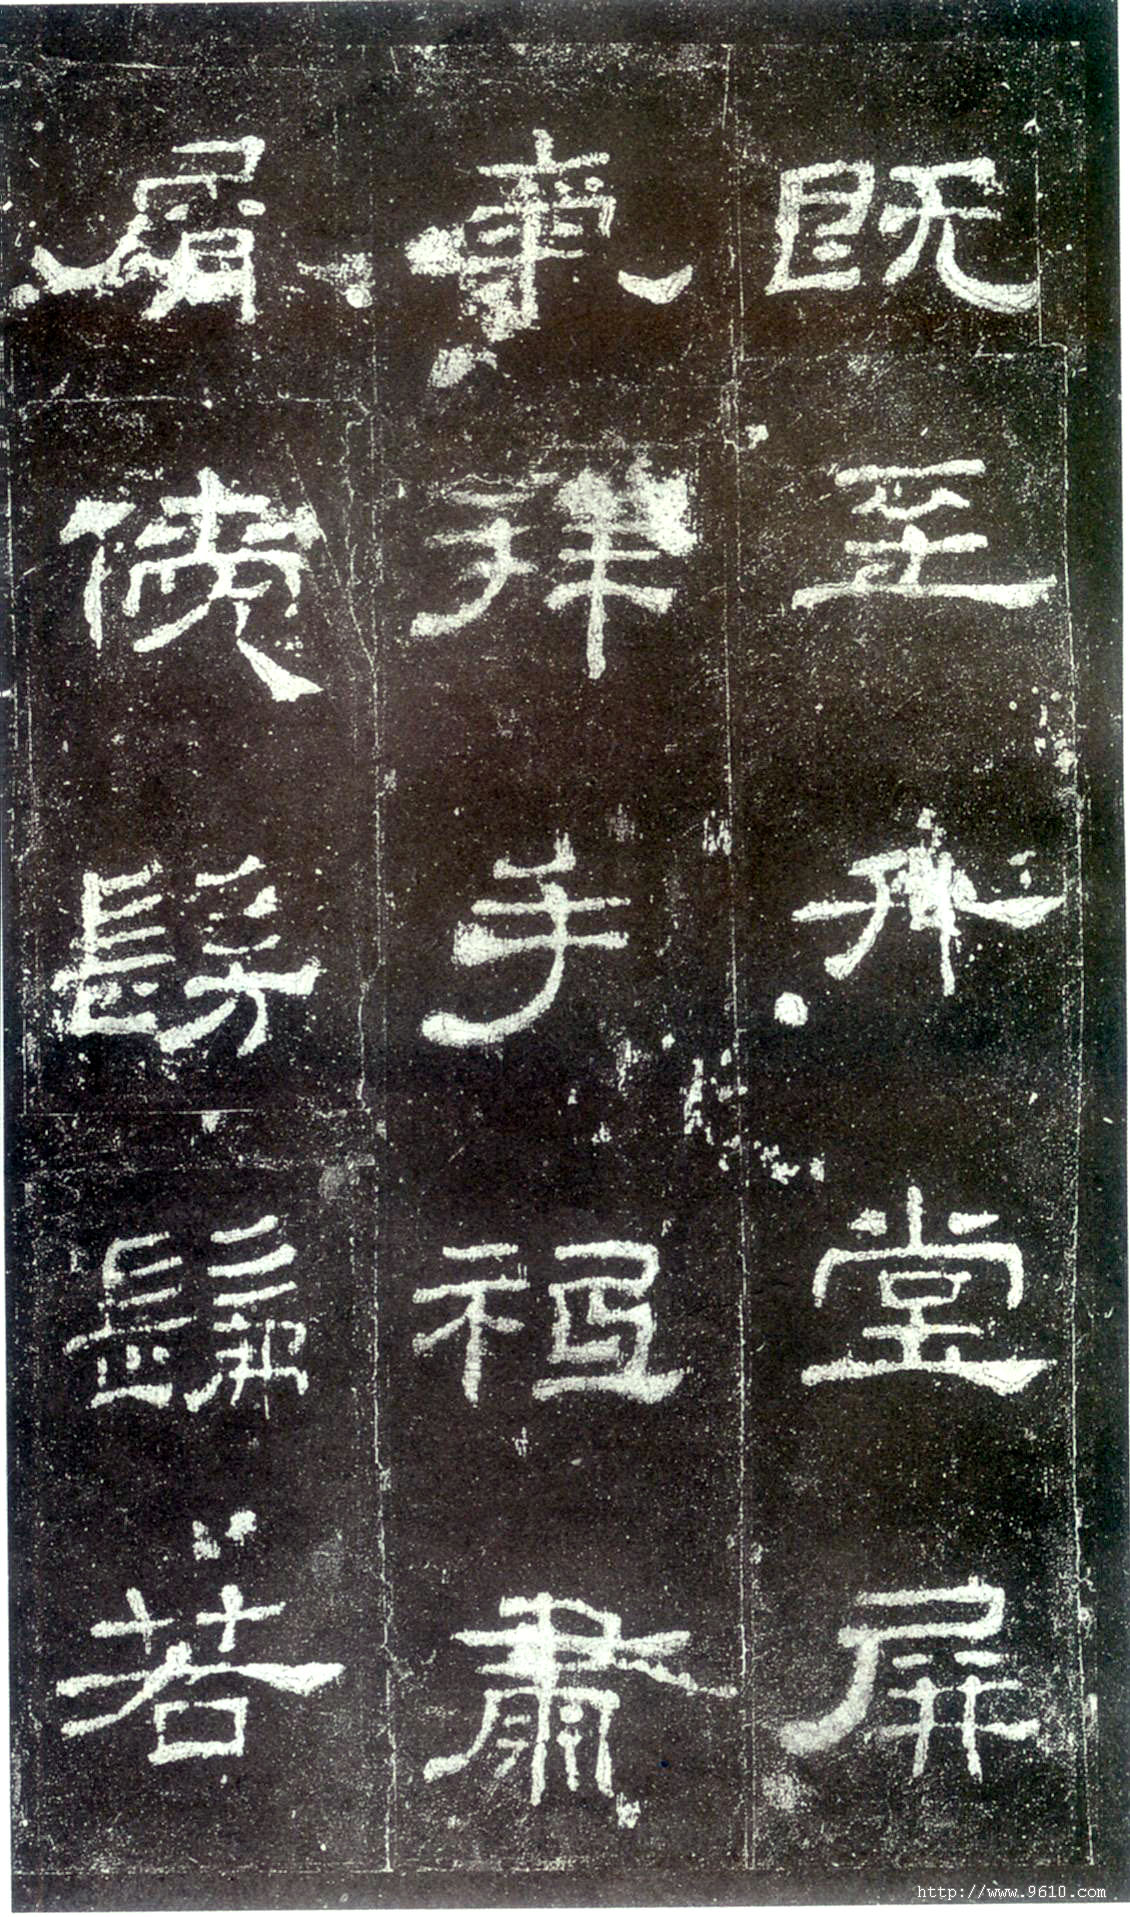 既至升堂屏
氣拜手祗肅
屑僾髣髴若
http://www.9610.com